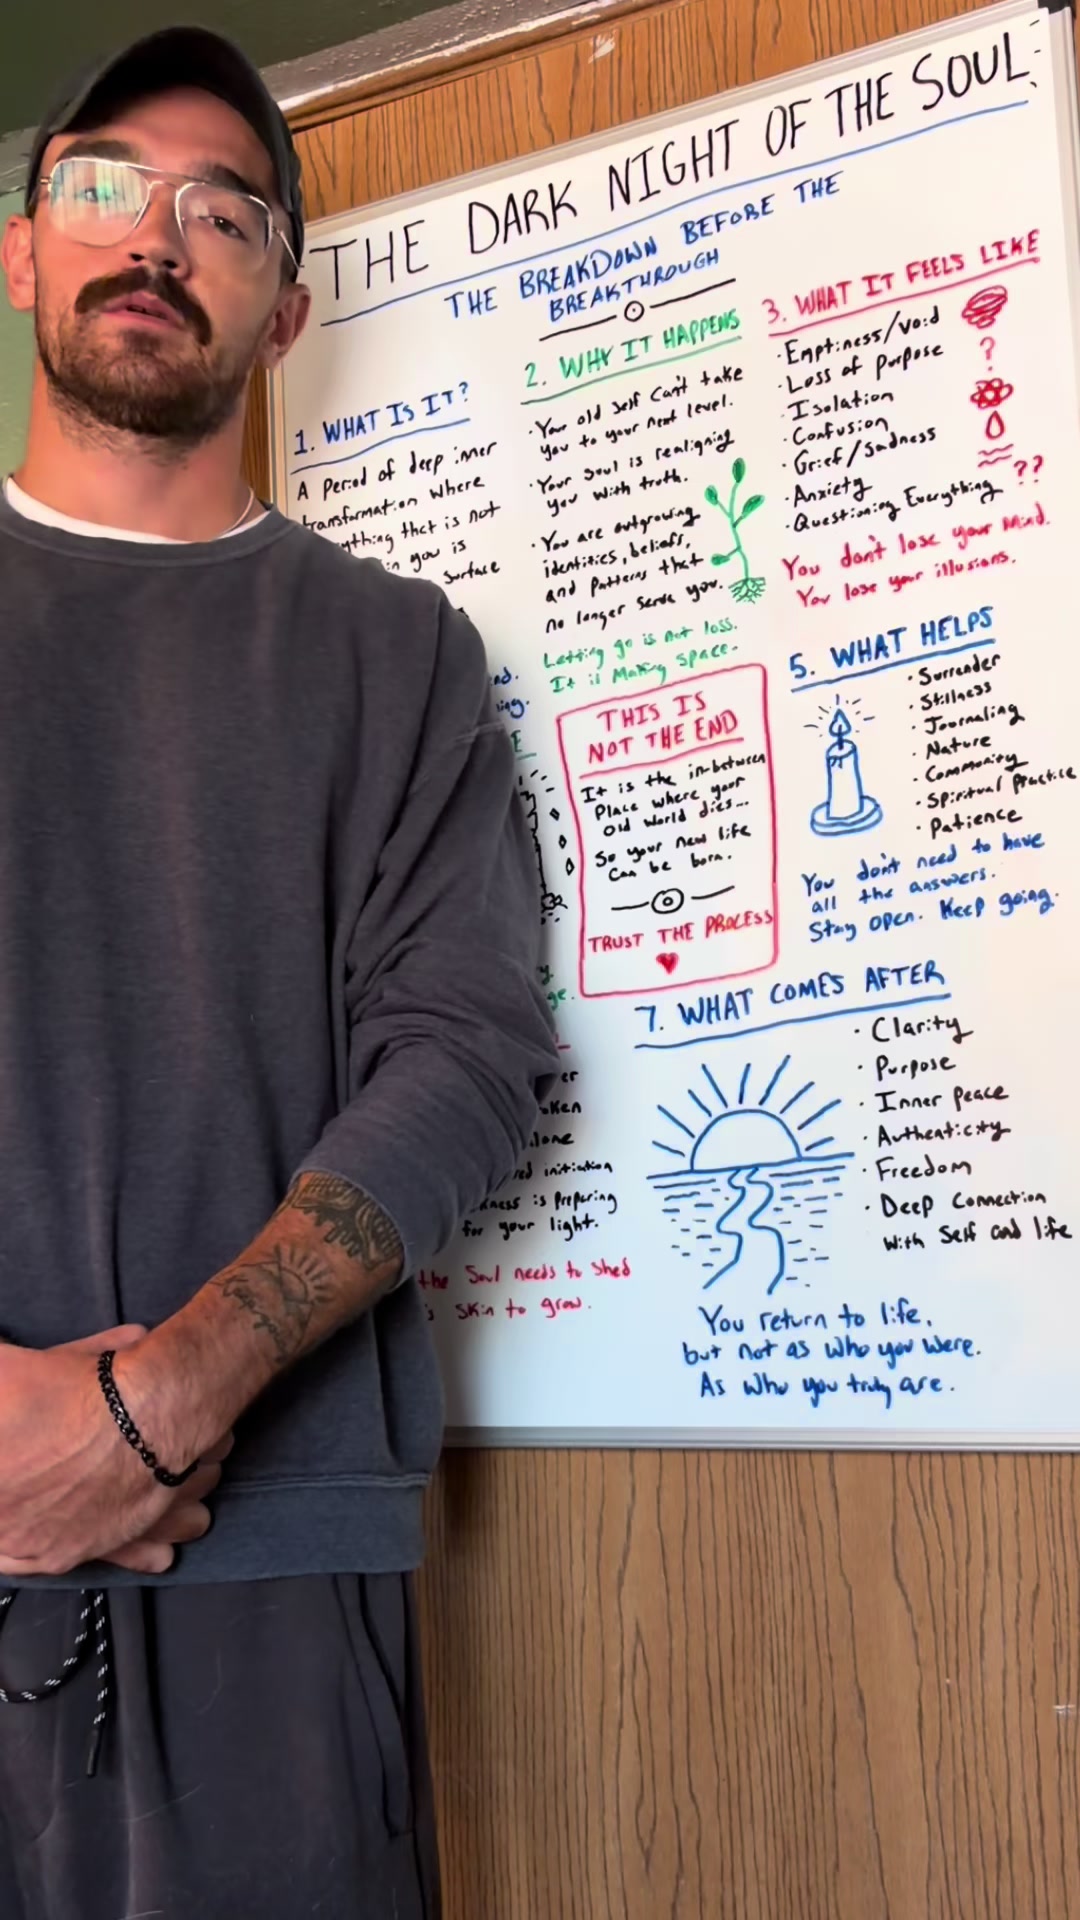 THE DARK NIGHT OF THE SOUL
THE BREAKDOWN BEFORE THE
BREAKTHROUGH
1. WHAT IS IT?
A Period of deep inner
transformation where
ything that is not
in you is
surface
nd.
2. WHY IT HAPPENS
· Your old self can't take
you to your next level.
· Your soul is realigning
you with truth.
· You are outgrowing
identities, beliefs,
and patterns that
no longer serve you.
Letting go is not loss.
It is Making space.
3. WHAT IT FEELS LIKE
· Emptiness/void
· Loss of purpose
?
· Isolation
· Confusion
· Grief/Sadness
· Anxiety
· Questioning Everything ??
You don't lose your mind.
You lose your illusions.
E
THIS IS
NOT THE END
It is the in-between
Place where your
old world dies...
So your new life
Can be born.
TRUST THE PROCESS
5. WHAT HELPS
· Surrender
· Stillness
· Journaling
· Nature
· Community
· Spiritual Practice
· Patience
You don't need to have
all the answers.
Stay open. Keep going.
y.
ge.
er
oken
lone
red initiation
kness is preparing
for your light.
the Soul needs to shed
s skin to grow.
7. WHAT COMES AFTER
· Clarity
· Purpose
· Inner peace
· Authenticity
· Freedom
· Deep Connection
with Self and life
You return to life,
but not as who you were.
As who you truly are.